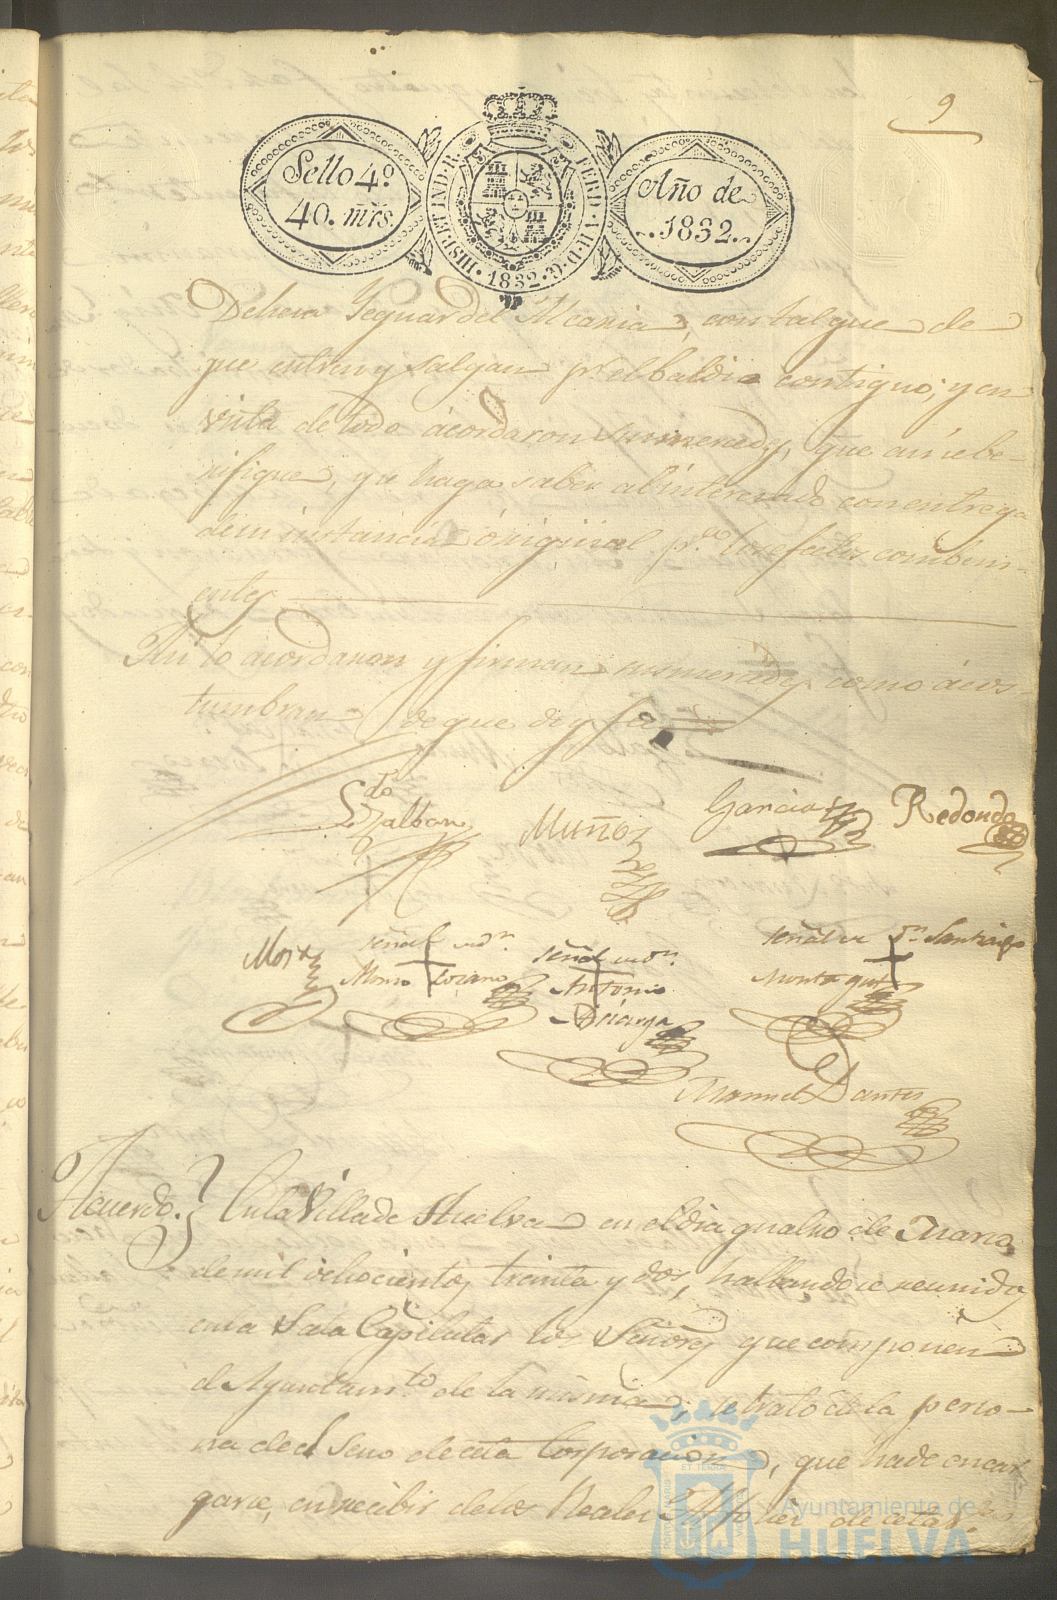 9
Sello 4º
40. mrs.
HISP. ET IND. R. FERD. VII. D. G. 1832
Año de
1832.
Dehesa Yeguar del Alcaria, con tal que de
que entren y salgan pr. el baldio contiguo; y en
vista de todo acordaron sus mercedes, que asi se be-
rifique, y se haga saber al interesado con entrega
de su instancia original pa. los efectos combeni-
entes
Asi lo acordaron y firman sus mercedes como acos-
tumbran de que doy fé
Ldo. Zalban
Muñoz
Garcia
Redondo
Mora
señal de dn.
Lozano
señal de dn.
Antonio
señal de dn. Santiago
Manuel Dantes
Acuerdo. En la Villa de Huelva en el dia quatro de Marzo
de mil ochocientos treinta y dos, hallandose reunidos
en la Sala Capitular los Señores que componen
el Ayuntamto. de la misma, se trató de la perso-
na del seno de esta Corporacion, que ha de encar
garse, en recibir de los Reales de esta
Ayuntamiento de
HUELVA